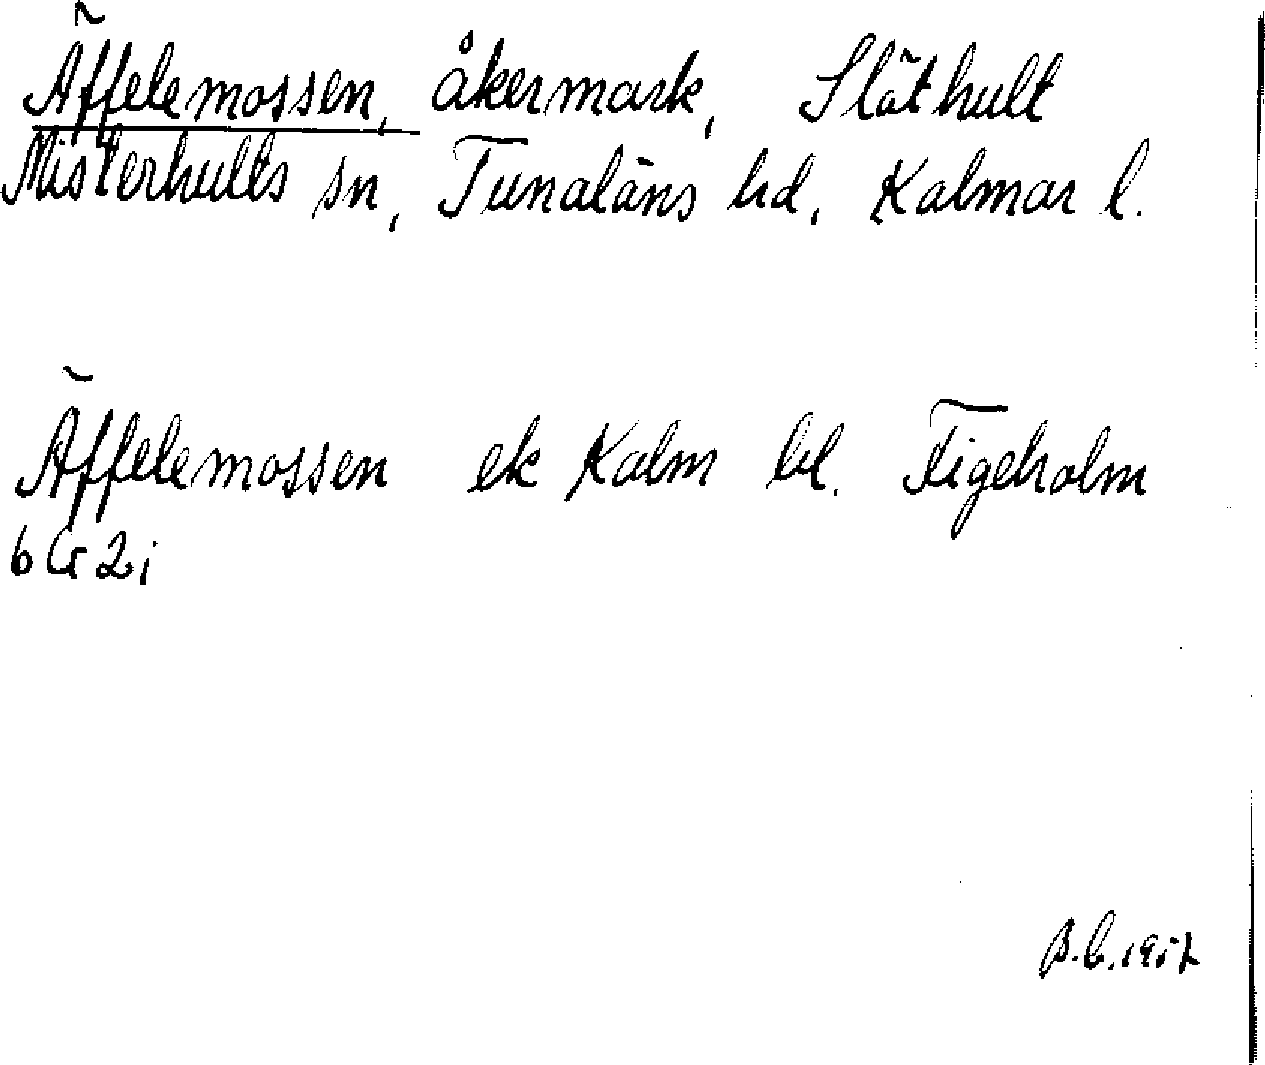 Äffelemossen, åkermark, Släthult
Misterhults sn, Tunaläns hd, Kalmar l.
Äffelemossen ek Kalm bl. Figeholm
6 G 2 i
B.C. 1957